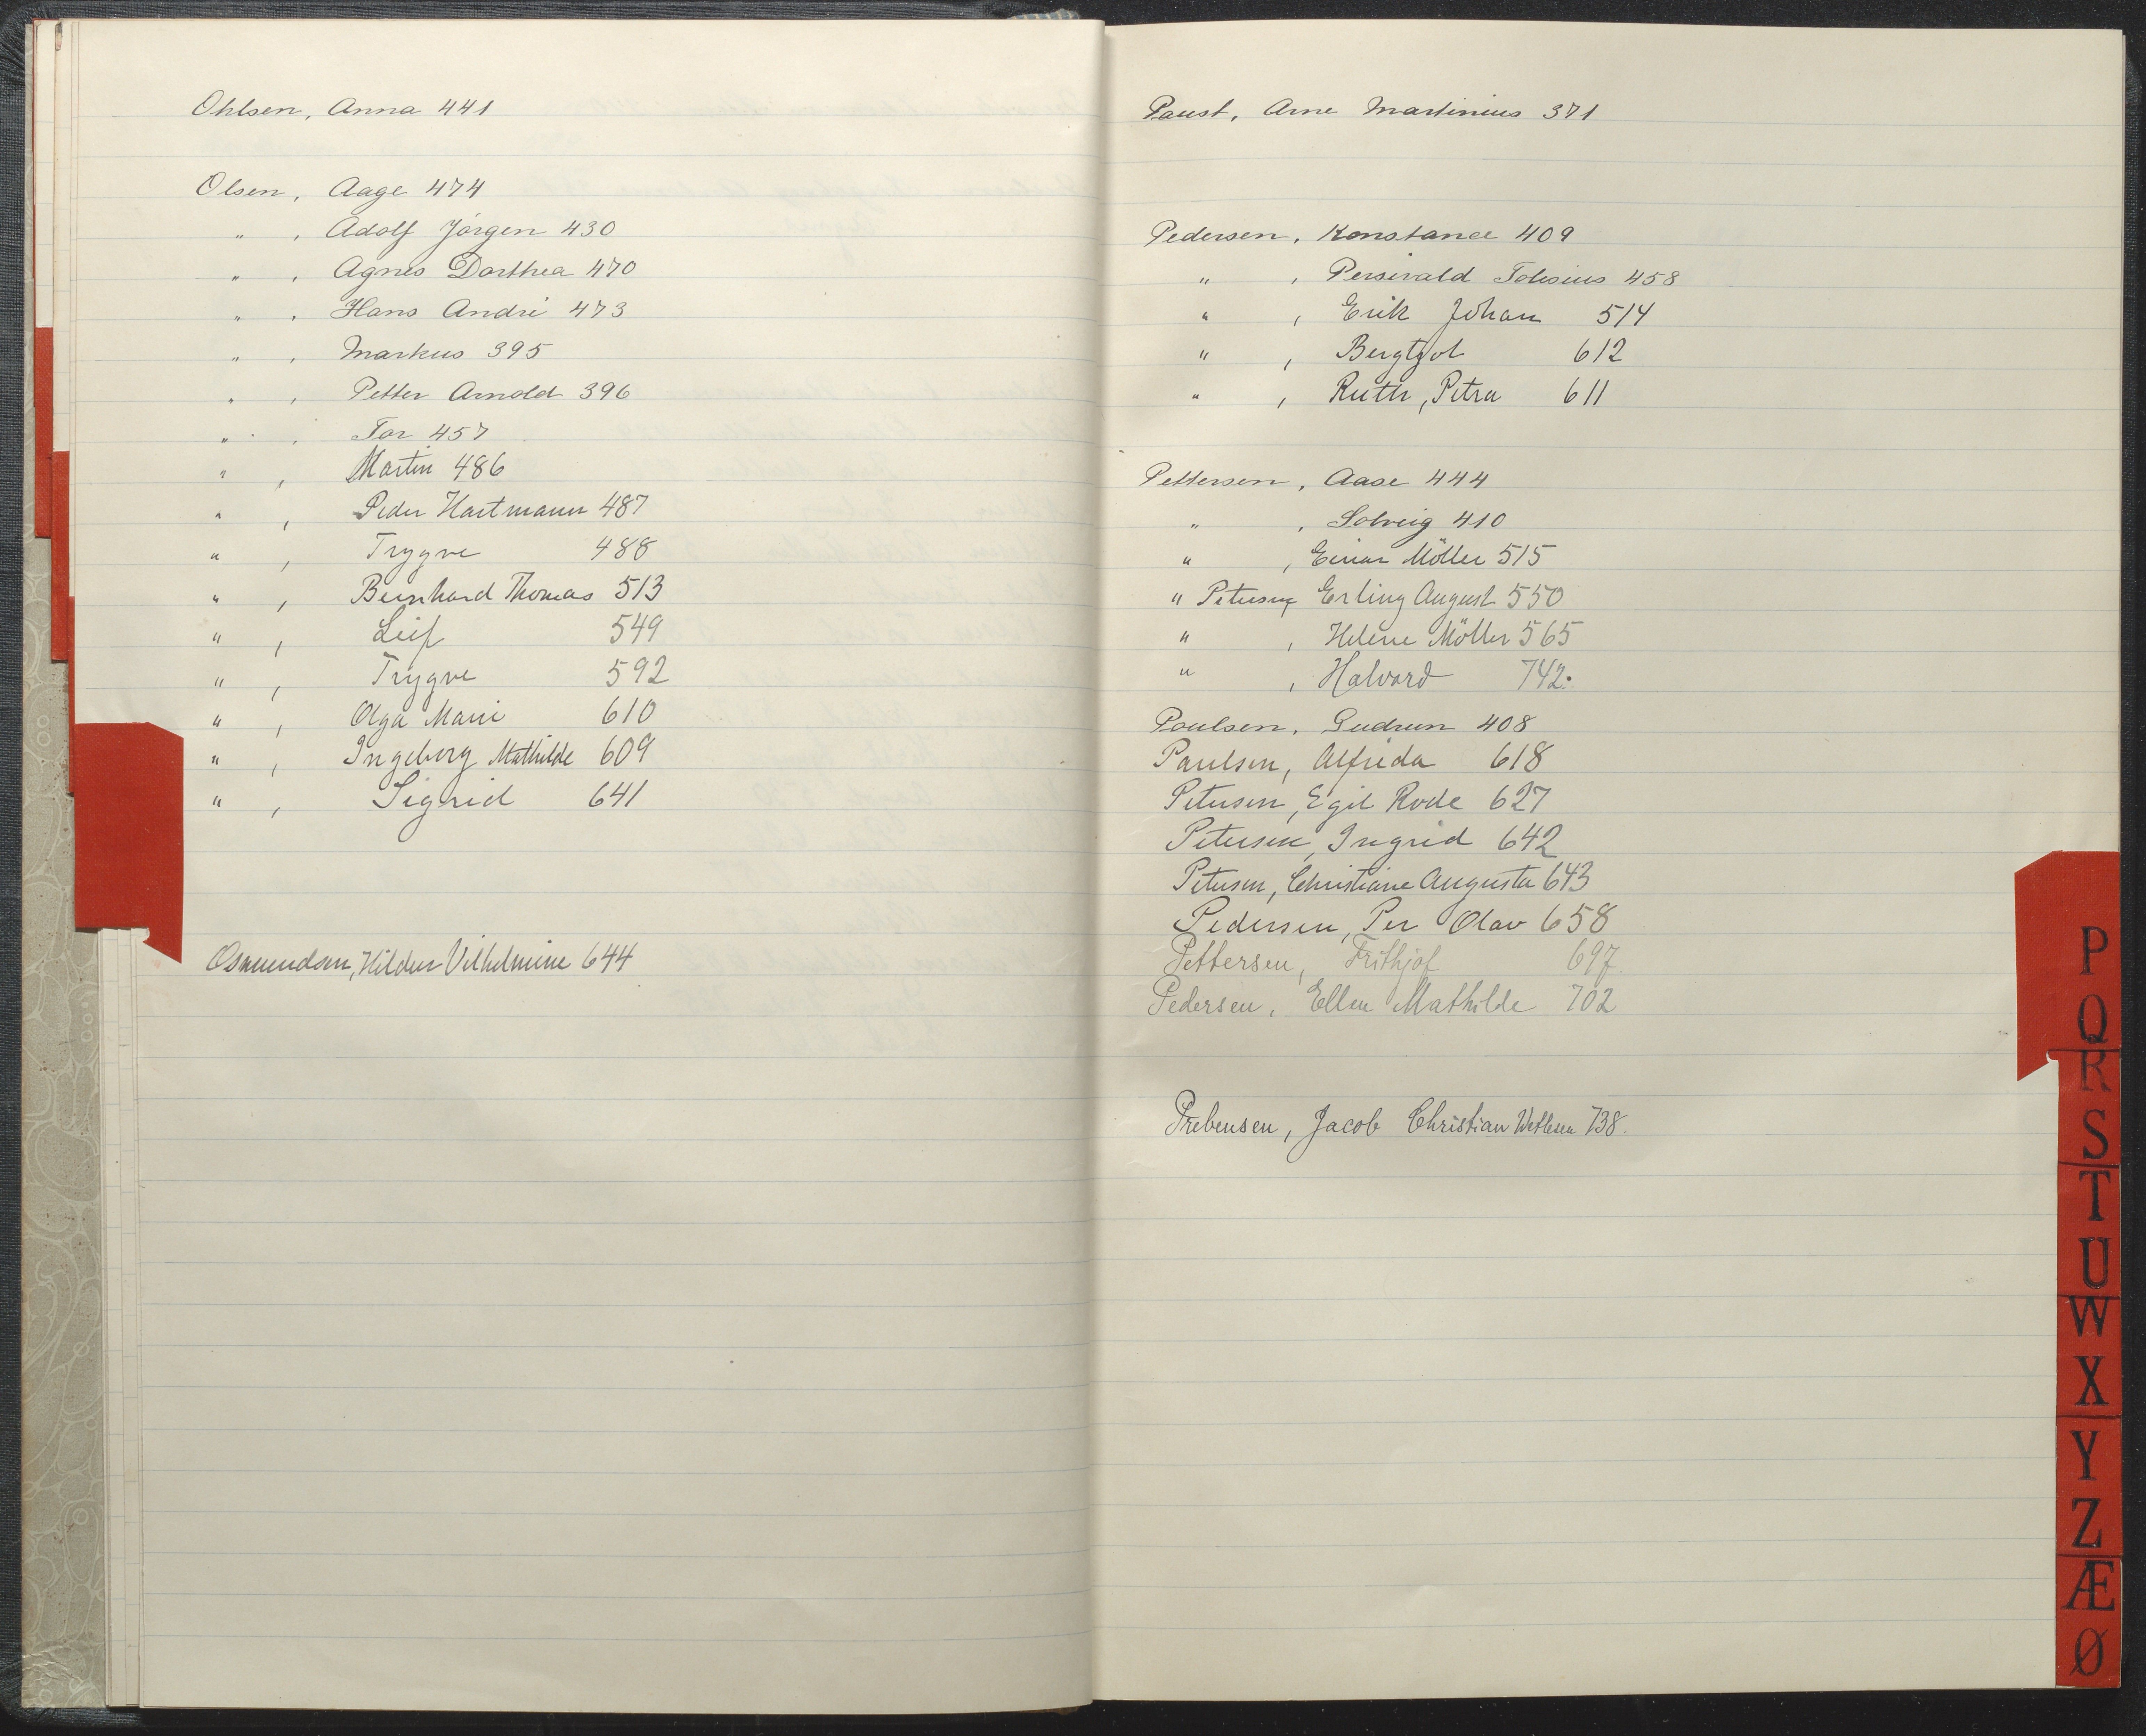 Ohlsen, Anna 441
Olsen, Aage 474
" , Adolf Jörgen 430
" , Agnes Dorthea 470
" , Hans André 473
" , Markus 395
" , Petter Arnold 396
" , Tor 457
" , Martin 486
" , Peder Hartmann 487
" , Trygve 488
" , Bernhard Thomas 513
" , Leif 549
" , Trygve 592
" , Olga Marie 610
" , Ingeborg Mathilde 609
" , Sigrid 641
Osmundsen, Hildur Vilhelmine 644
Paust, Arne Martinius 371
Pedersen, Konstance 409
" , Persivald 458
" , Erik Johan 514
" , Bergtjot 612
" , Ruth, Petra 611
Pettersen, Aase 444
" , Solveig 410
" , Einar Möller 515
" Petersen Erling August 550
" , Helene Möller 565
" , Halvard 742.
Poulsen, Gudrun 408
Paulsen, Alfrida 618
Petersen, Egil Rode 627
Petersen, Ingrid 642
Petersen, Christiane Augusta 643
Pedersen, Per Olav 658
Pettersen, Frithjof 697
Pedersen, Ellen Mathilde 702
Prebensen, Jacob Christian Wetlesen 738.
P
Q
R
S
T
U
W
X
Y
Z
Æ
Ø